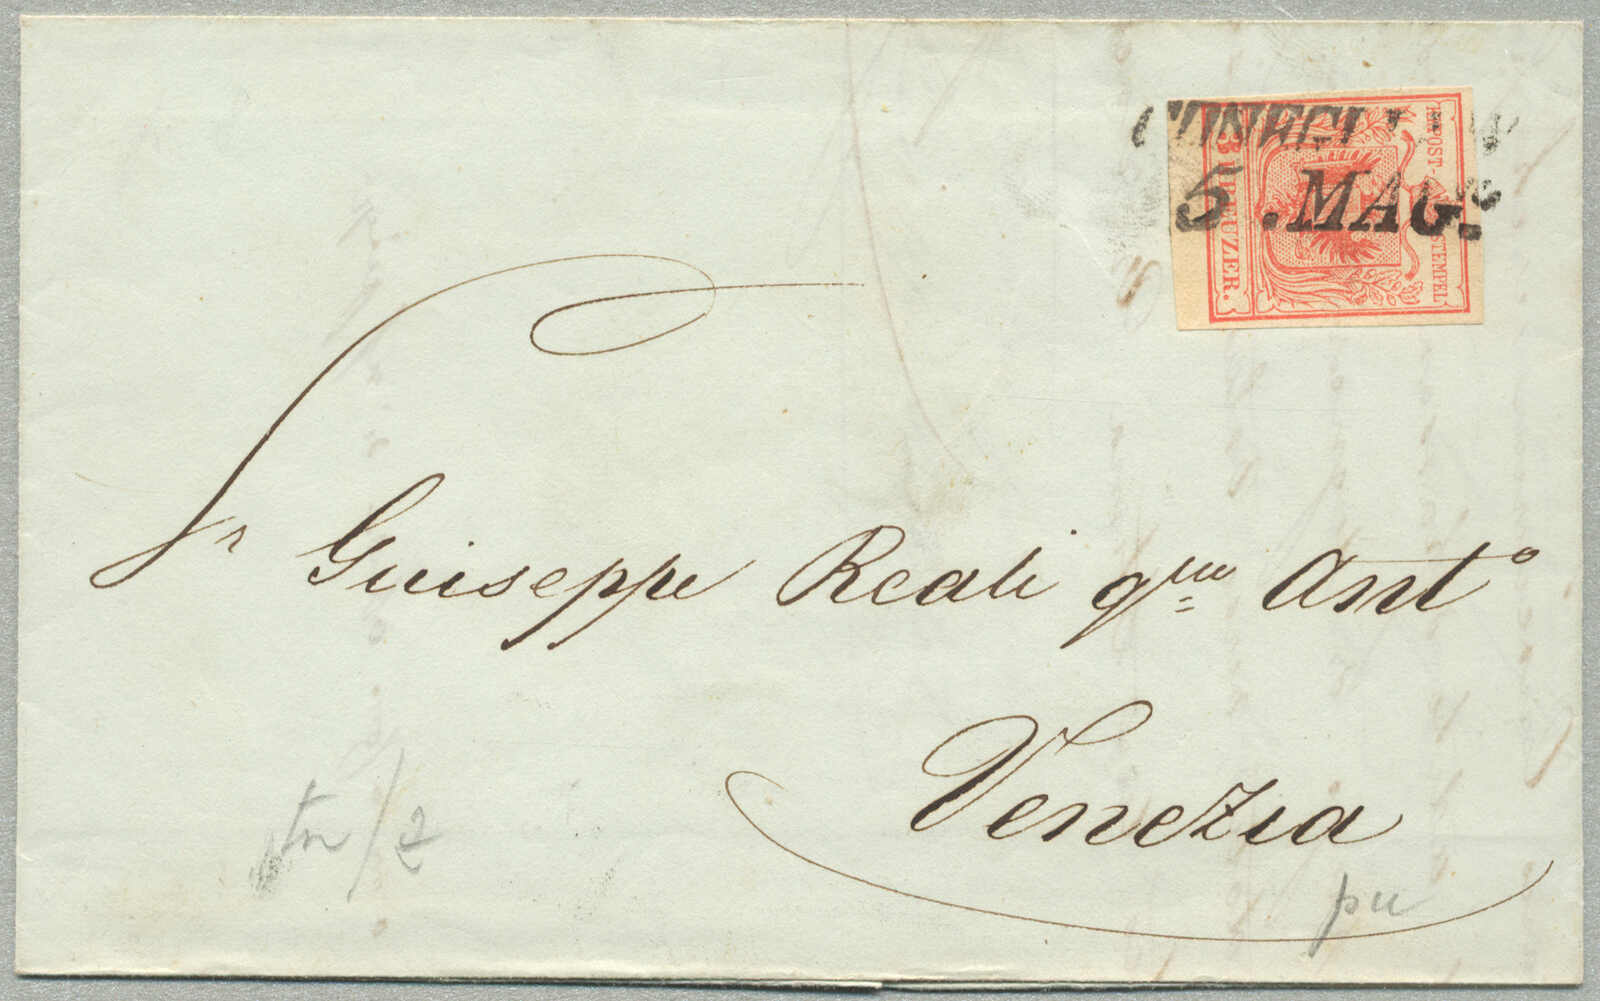 5 .MAG.º
KKPOST-STEMPEL
3 KREUZER.
Sr Giuseppe Reali qm Antº
Venezia